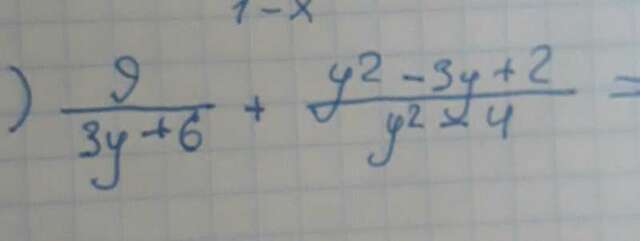 1-x
) 9/(3y+6) + (y² - 3y + 2)/(y² - 4) =